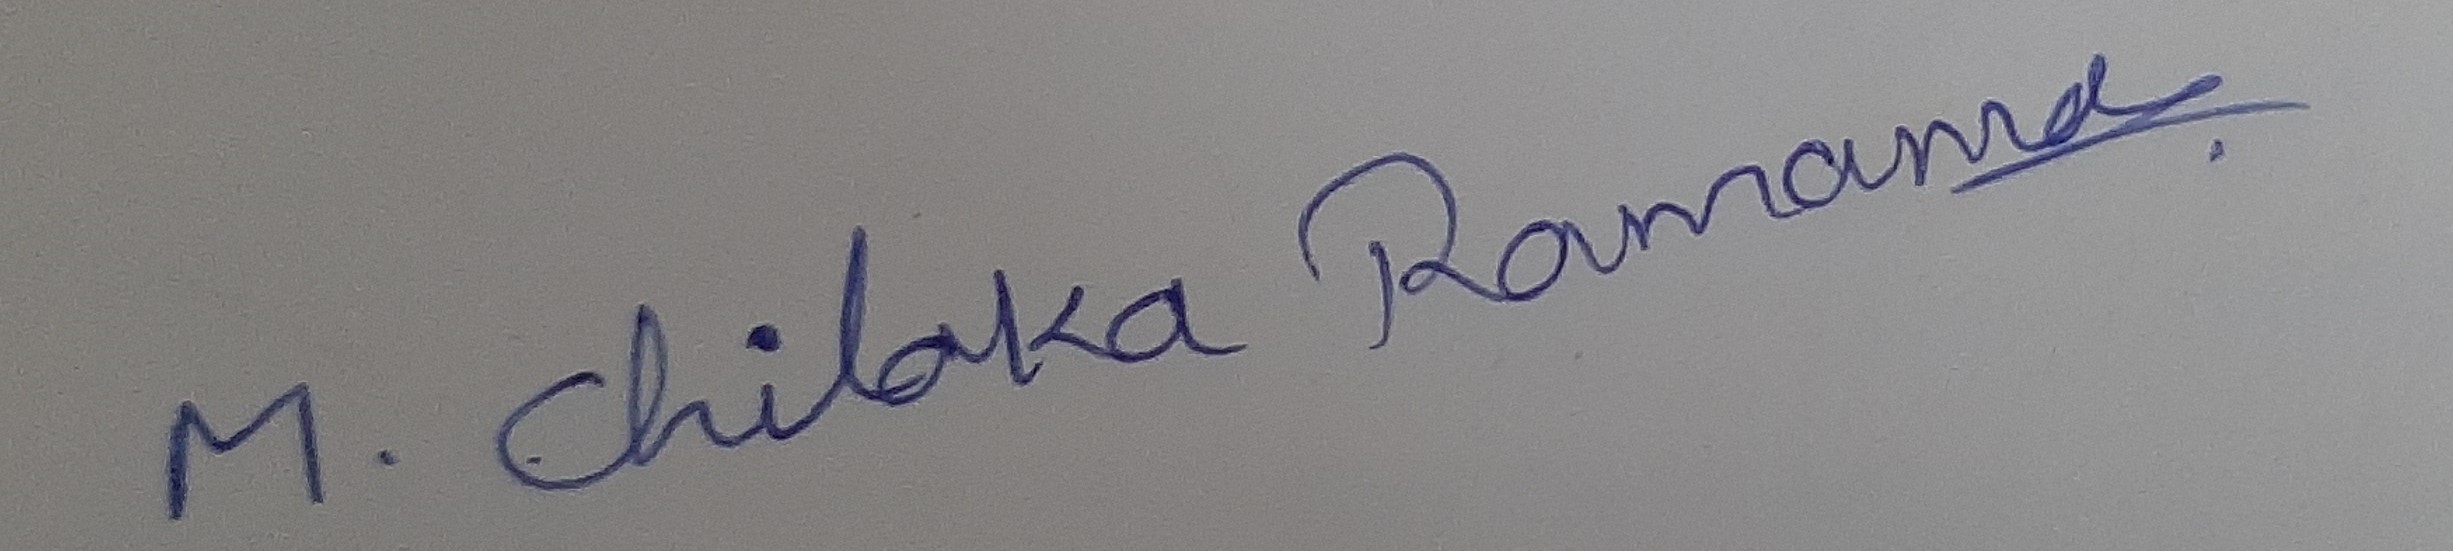 M. Chilaka Ramana.